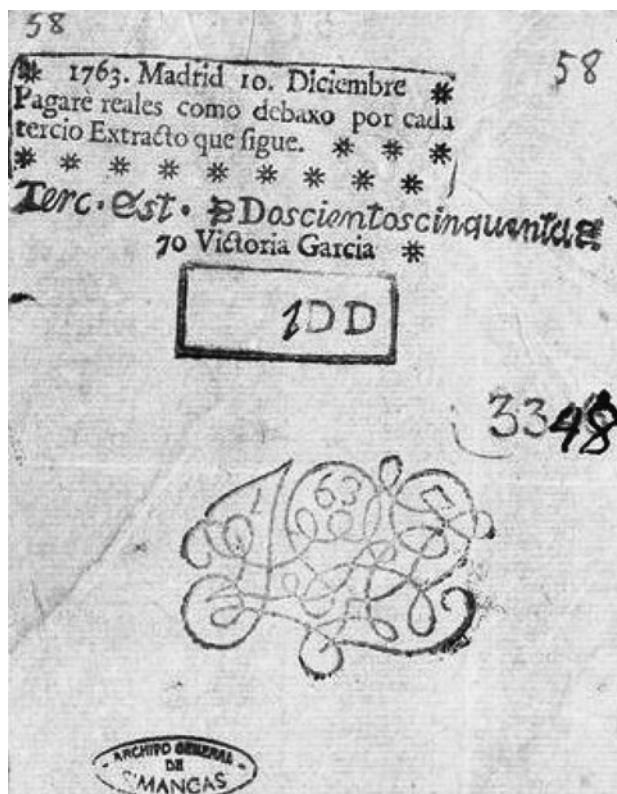 58
58
* 1763. Madrid 10. Diciembre *
Pagarè reales como debaxo por cada
tercio Extracto que sigue. * * *
* * * * * * * * *
Terc. est. Doscientoscinquenta
70 Victoria Garcia *
1DD
3348
63
ARCHIVO GENERAL
DE
SIMANCAS